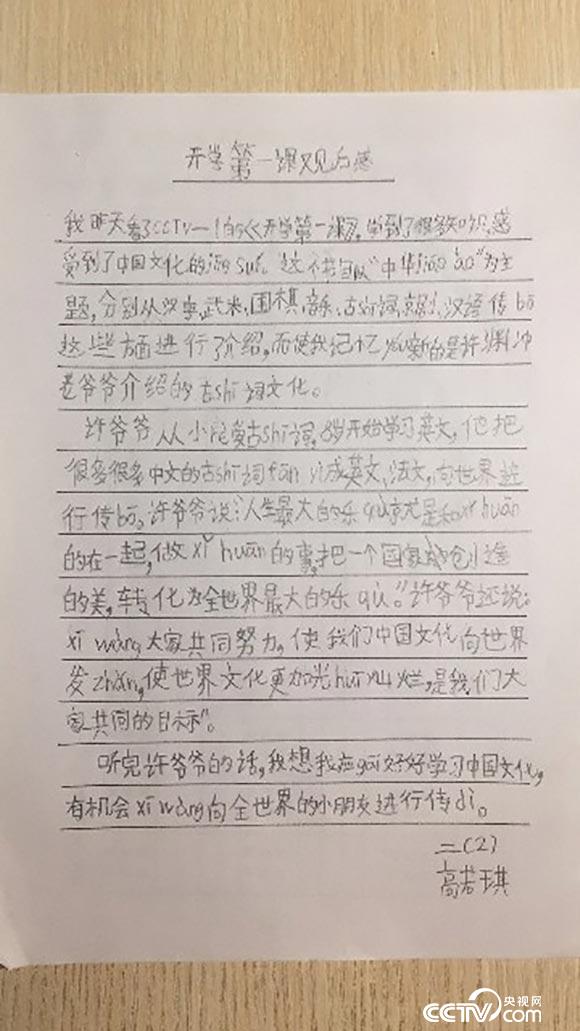 开学第一课观后感
我昨天看了CCTV—1的《开学第一课》，学到了很多知识，感
受到了中国文化的jīng suǐ。这不节目以"中华jiāo ào"为主
题，分别从汉字、武术、围棋、音乐、古shī词、京剧、汉语传bō
这些方面进行了介绍，而使我记忆yóu新的是许渊冲
老爷爷介绍的古shī词文化。
许爷爷从小酷爱古shī词，8岁开始学习英文，他把
很多很多中文的古shī词fān yì成英文、法文，向世界进
行传bō。许爷爷说："人生最大的乐qù就是和xǐ huān
的在一起，做xǐ huān的事，把一个国家创造
的美，转化为全世界最大的乐qù。"许爷爷还说：
xī wàng大家共同努力，使我们中国文化向世界
发zhǎn，使世界文化更加光huī灿烂，是我们大
家共同的目标"。
听完许爷爷的话，我想我应gāi好好学习中国文化，
有机会xī wàng向全世界的小朋友进行传dì。
二(2)
高若琪
央视网
CCTV.com